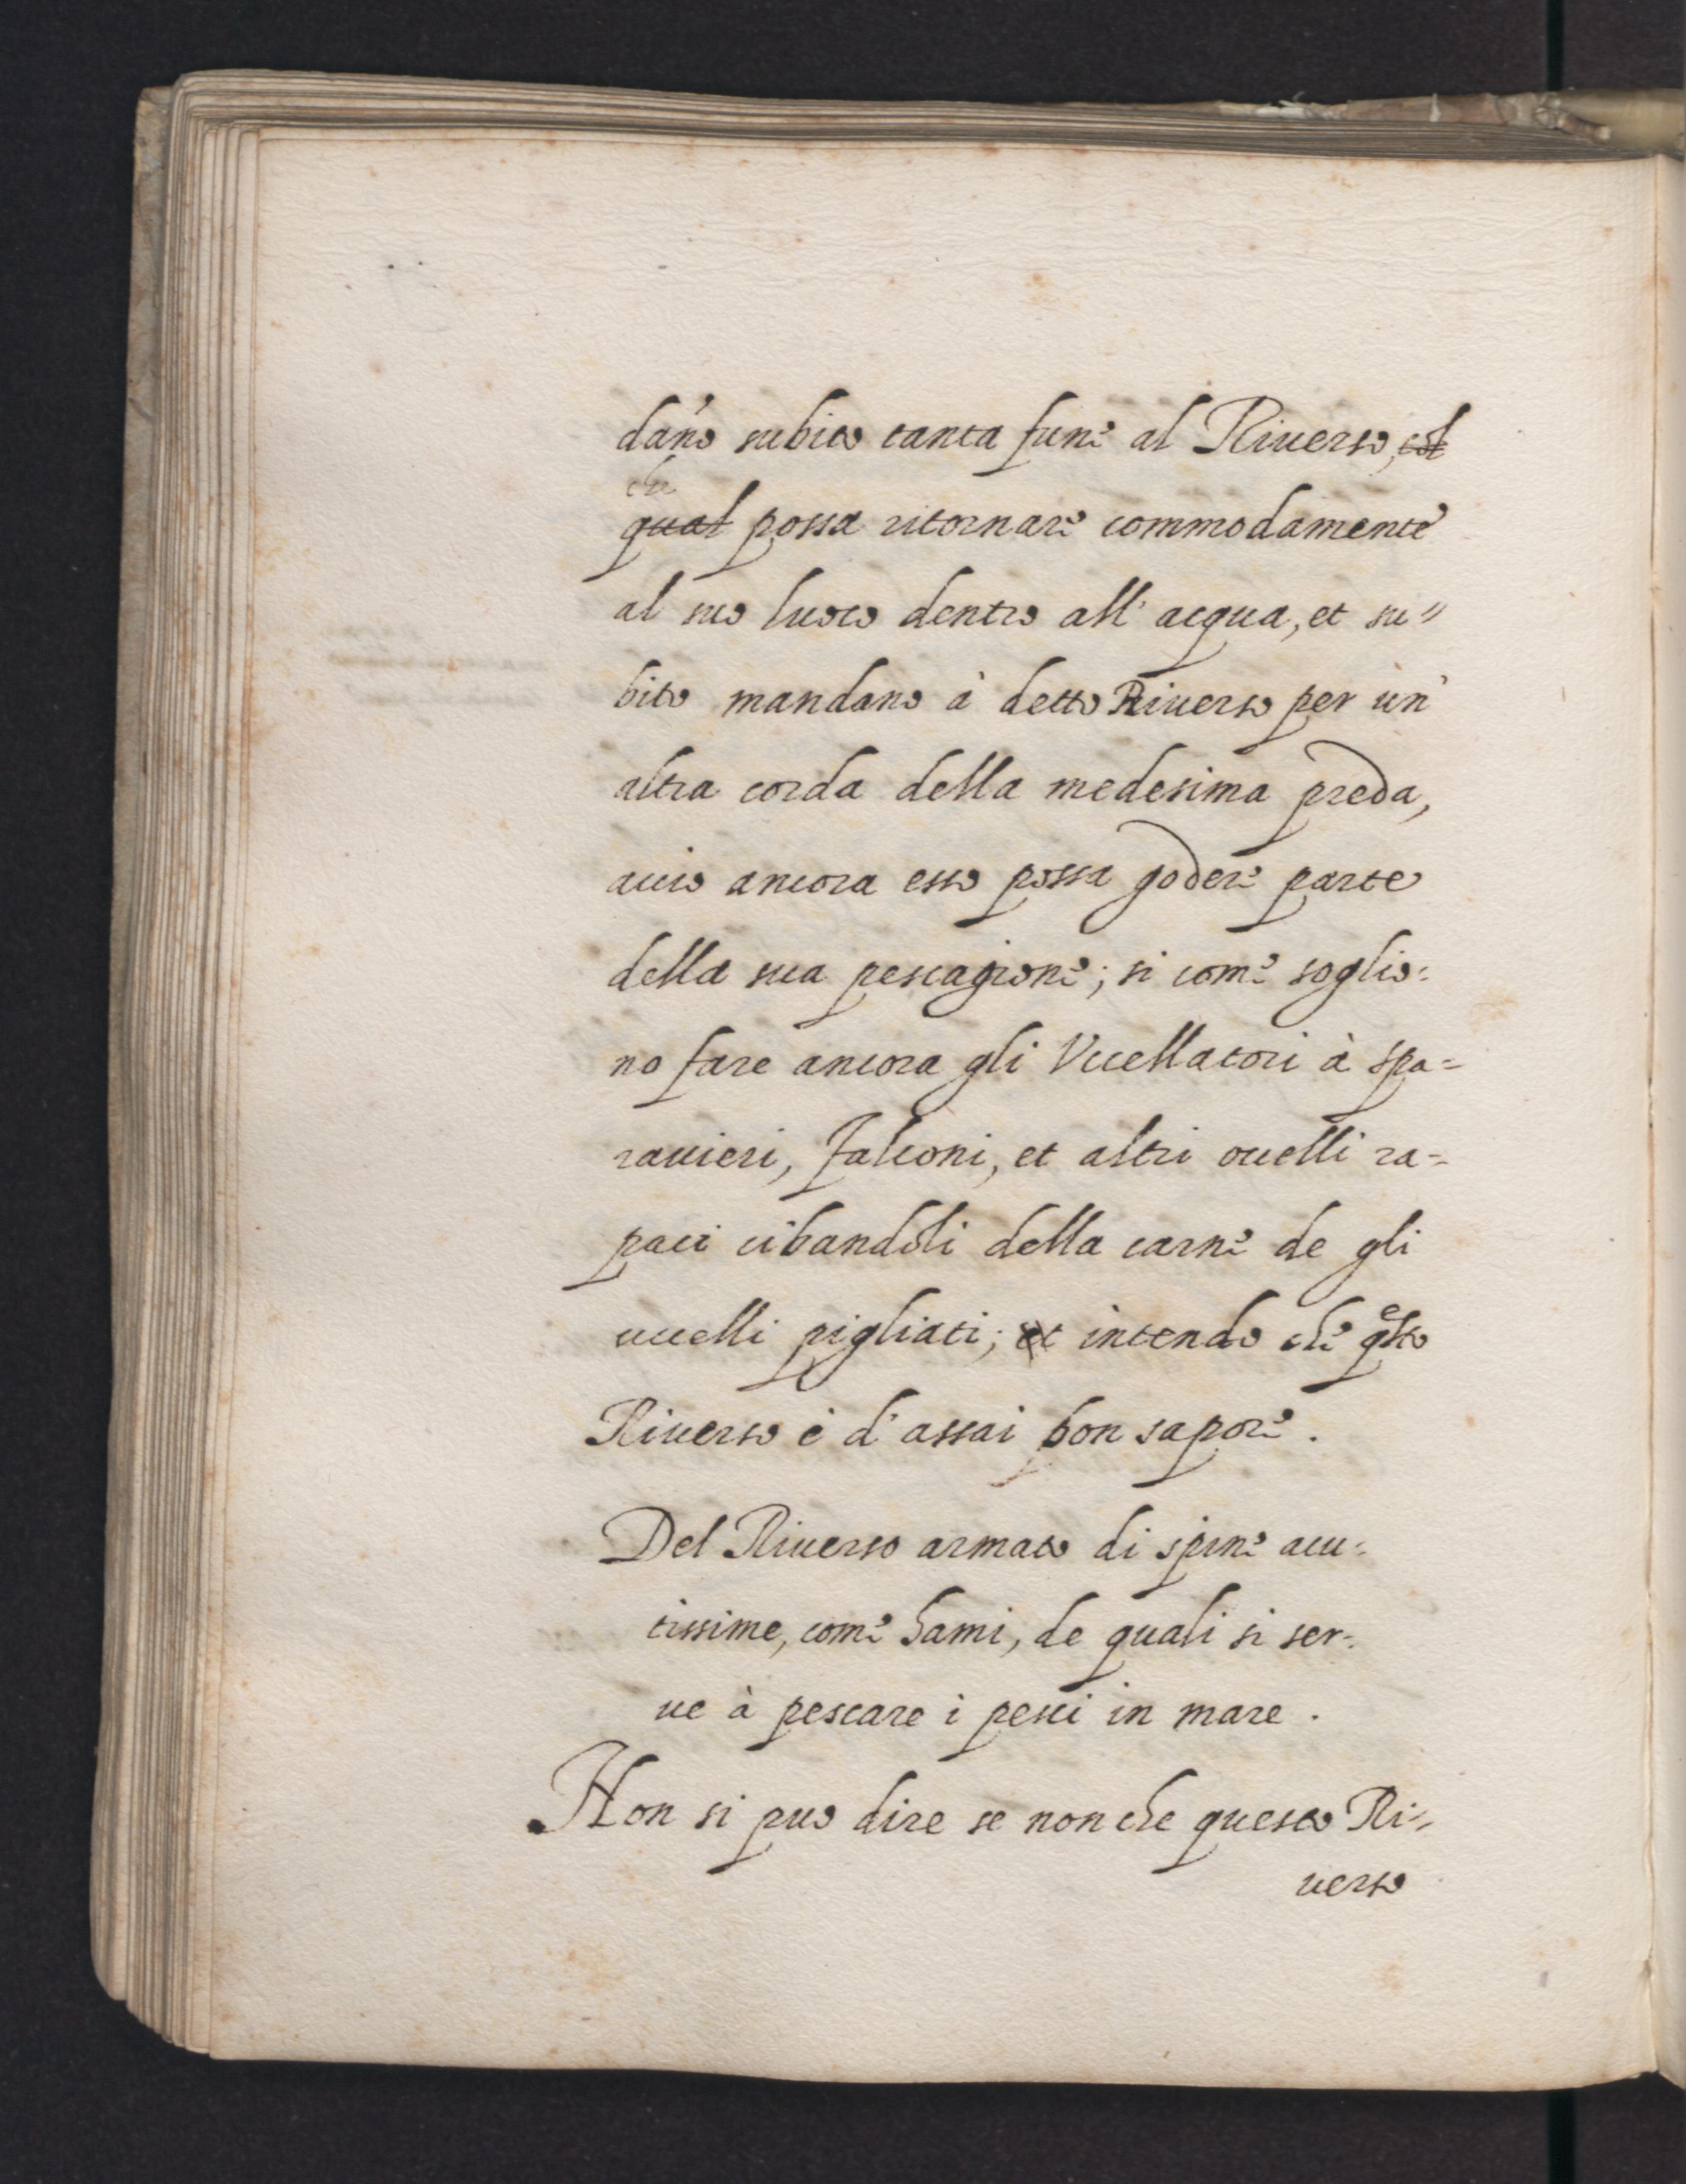 dan'o subito tanta fune al Riuerso, col
che
qual possa ritornare commodamente
al suo luoco dentro all' acqua, et su"
bito mandano à detto Riuerso per un'
altra corda della medesima preda,
acciò ancora esso possa godere parte
della sua pescagione; si come soglio=
no fare ancora gli Vccellatori à spa=
rauieri, falconi, et altri occelli ra=
paci cibandoli della carne de gli
uccelli pigliati; et intendo che q̃sto
Riuerso è d' assai bon sapore.
Del Riuerso armato di spine acu=
tissime, come hami, de quali si ser=
ue à pescare i pesci in mare.
Non si puo dire se non che questo Ri=
uerso